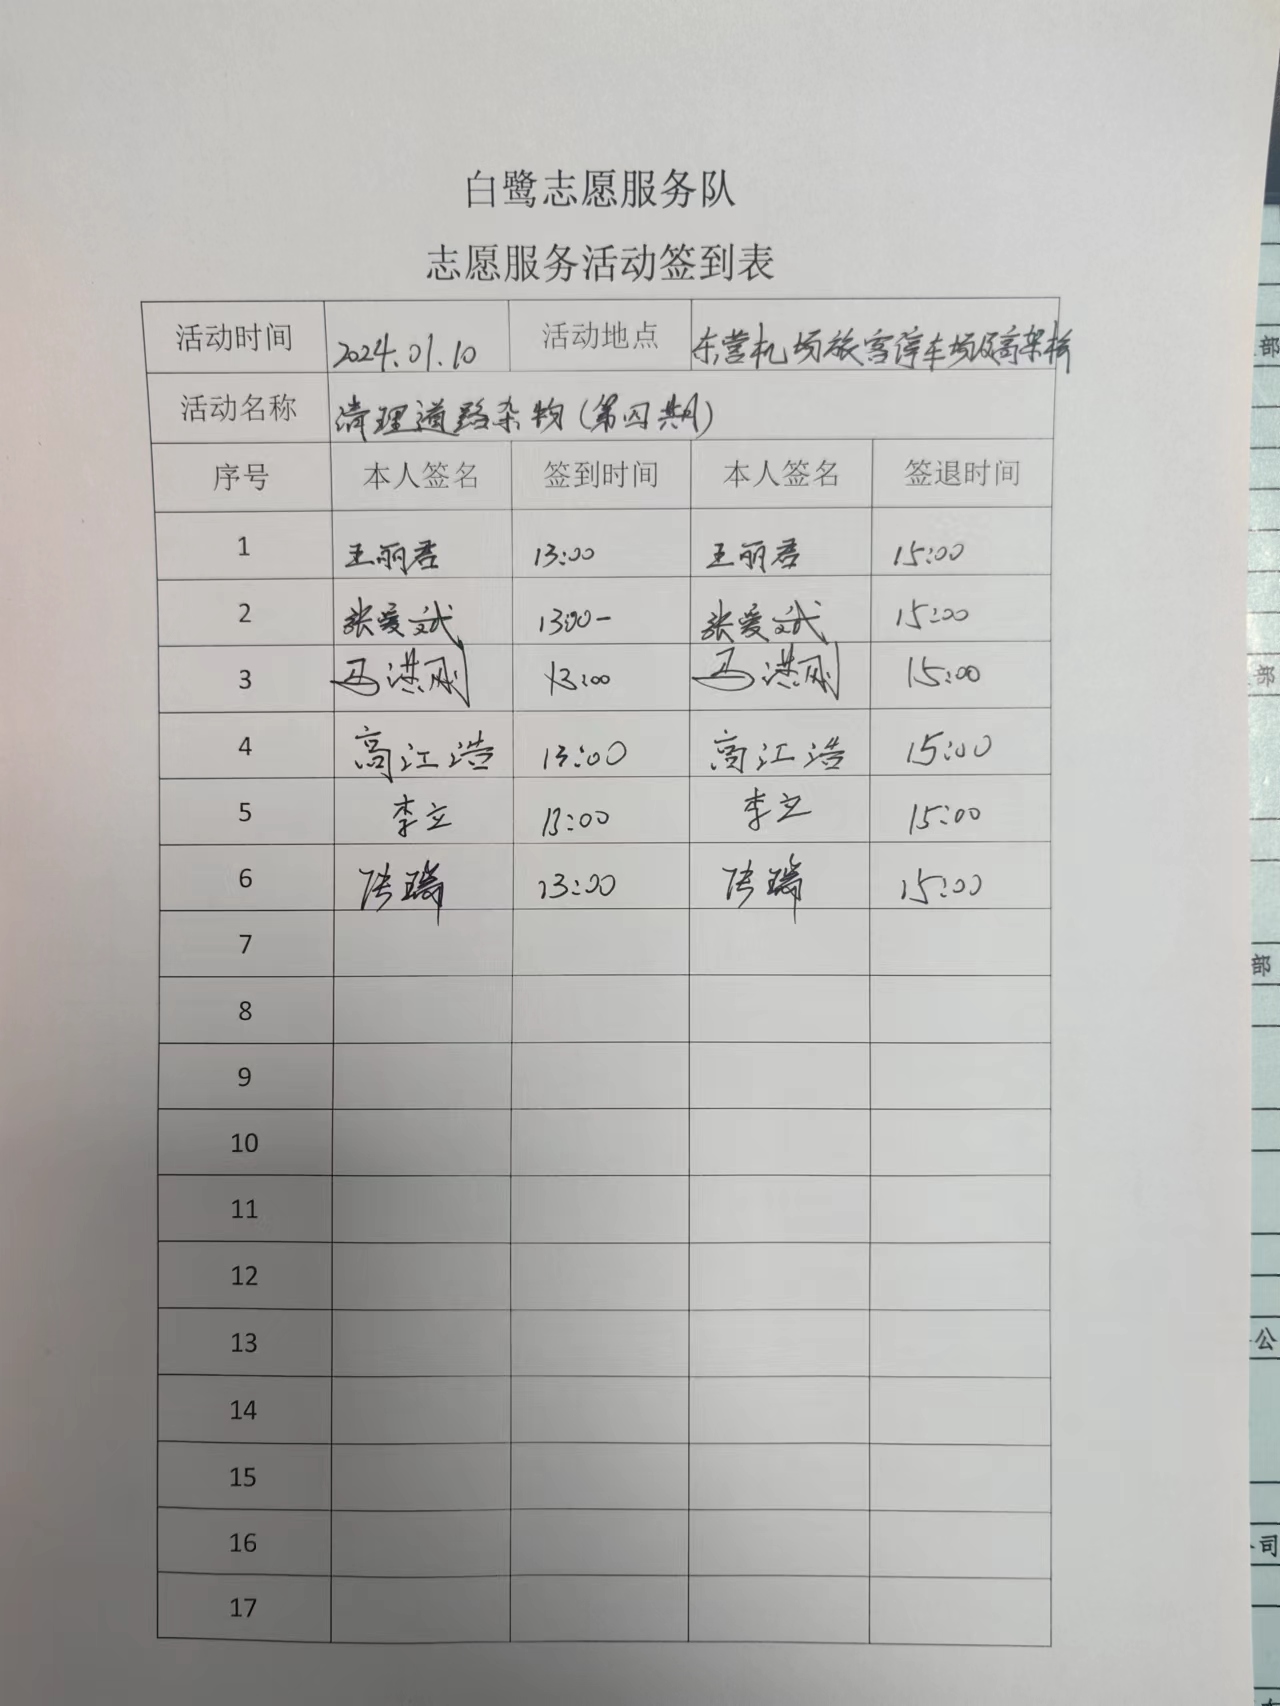 白鹭志愿服务队
志愿服务活动签到表
活动时间 2024.01.10 活动地点 东营机场旅客停车场及高架桥
活动名称 清理道路杂物(第四期)
序号 本人签名 签到时间 本人签名 签退时间
1 王丽君 13:00 王丽君 15:00
2 张爱斌 13:00- 张爱斌 15:00
3 马洪刚 13:00 马洪刚 15:00
4 高江浩 13:00 高江浩 15:00
5 李立 13:00 李立 15:00
6 陈瑞 13:00 陈瑞 15:00
7
8
9
10
11
12
13
14
15
16
17
部
部
部
公
司